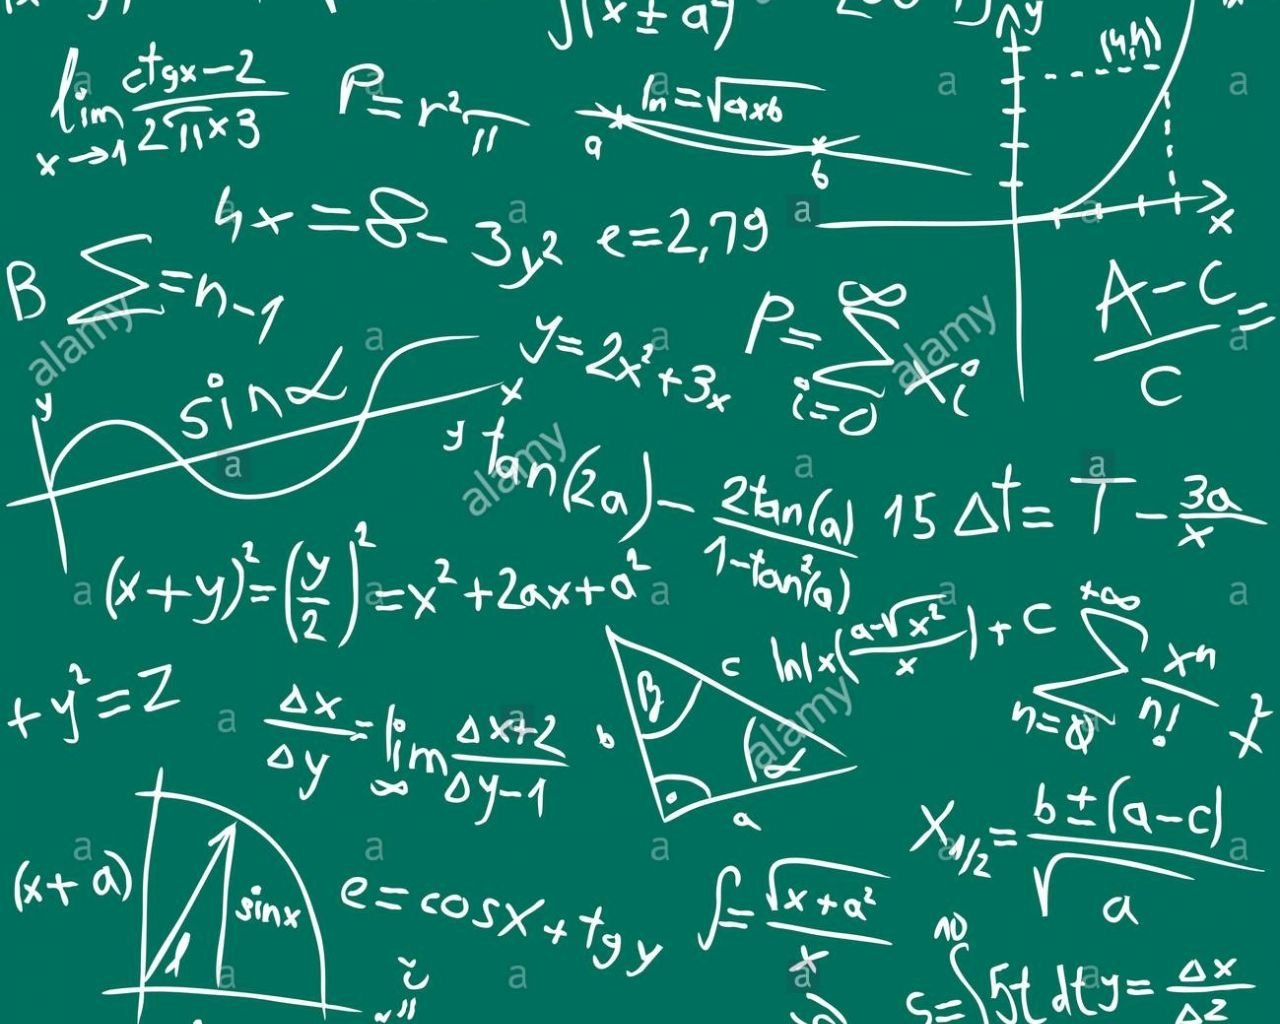 ∫(x ± a)
lim x→1 (ctgx-2)/(2π×3)
P=r²π
ln=√axb
a
b
y
(4,h)
x
4x=8-3y²
e=2,79
B Σ=n-1
y=2x²+3x
P= Σ i=0 ∞ xi
(A-C)/C =
y
sin α
x
y
tan(2a)- 2tan(a)/(1-tan²(a))
15 Δt= T - 3a/x
(x+y)²=(y/2)²=x²+2ax+a²
ln|x((a-√x²)/x)|+C
+∞ Σ n=0 xⁿ/n!
x²
+y²=Z
Δx/Δy = lim ∞ (Δx+2)/(Δy-1)
β
c
b
α
a
X1/2= (b±(a-c))/√a
(x+a)
sinx
e=cosx+tgy
∫= √(x+a²)/x
10
S=∫5t dt
y= Δx/Δz
alamy
alamy
alamy
alamy